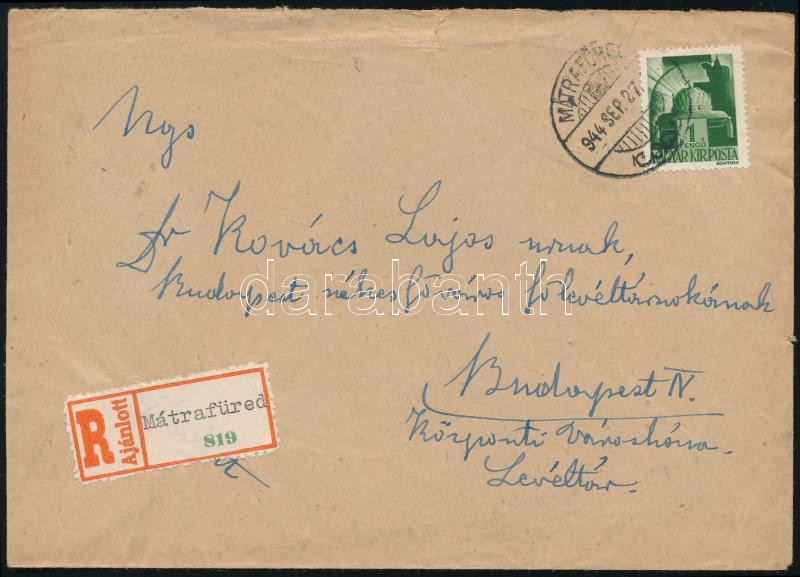 MÁTRAFÜRED
944 SEP. 27.
1
PENGŐ
MAGYAR KIR. POSTA
Ngs
Dr Kovács Lajos urnak,
Budapest székesfőváros főlevéltárnokának
darabanth
Budapest IV.
Központi Városháza.
Levéltár.
R
Ajánlott
Mátrafüred
819